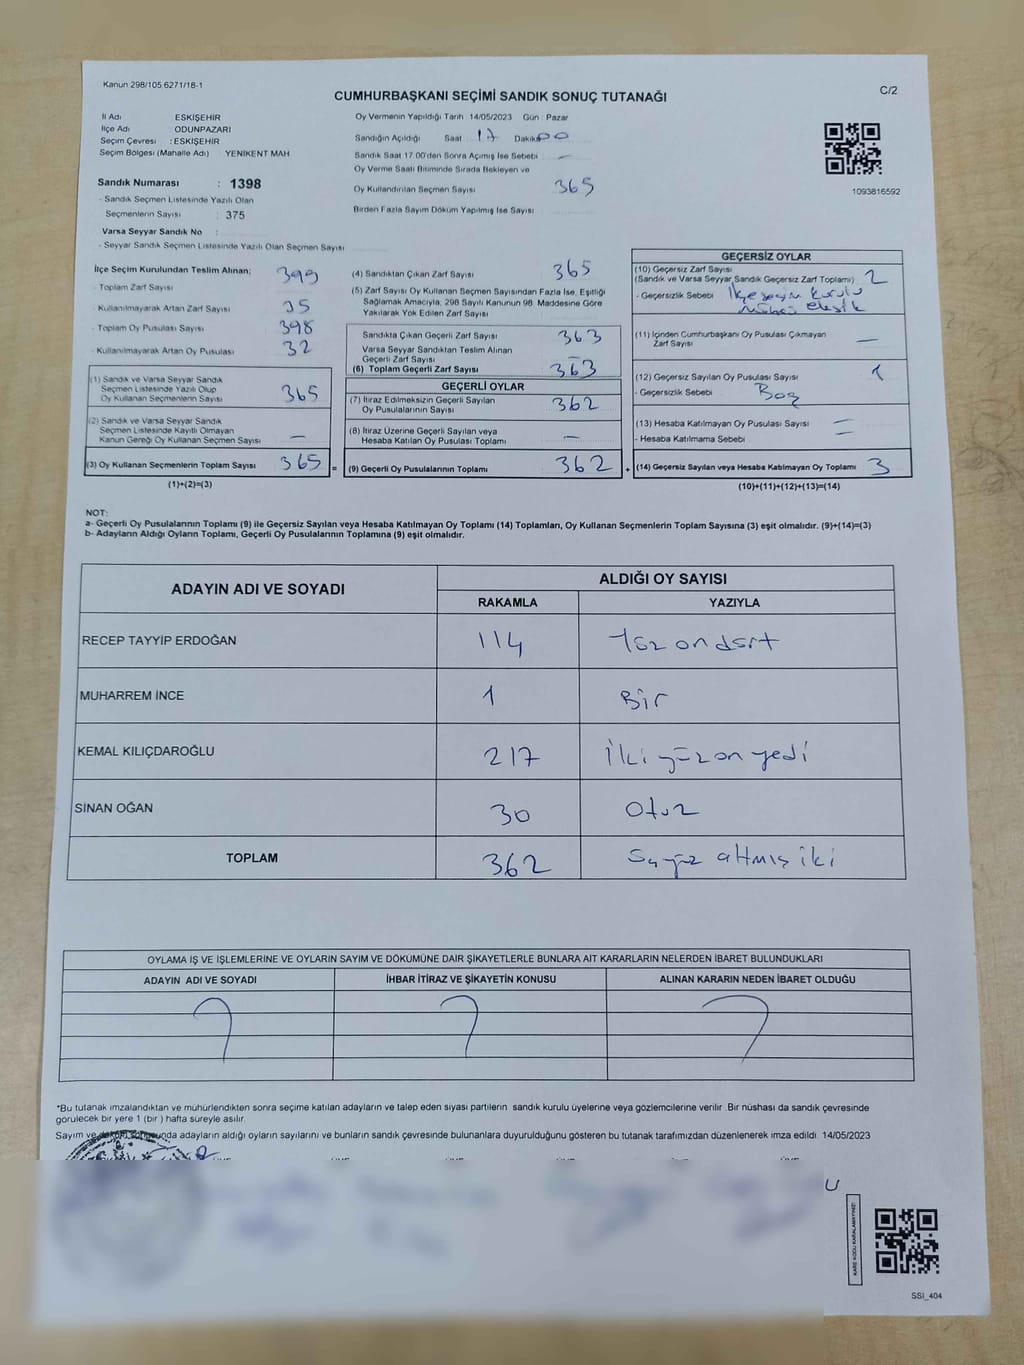 Kanun 298/105 6271/18-1
CUMHURBAŞKANI SEÇİMİ SANDIK SONUÇ TUTANAĞI
C/2
İl Adı ESKİŞEHİR
İlçe Adı ODUNPAZARI
Seçim Çevresi : ESKİŞEHİR
Seçim Bölgesi (Mahalle Adı) YENİKENT MAH
Sandık Numarası : 1398
- Sandık Seçmen Listesinde Yazılı Olan
Seçmenlerin Sayısı : 375
Varsa Seyyar Sandık No :
- Seyyar Sandık Seçmen Listesinde Yazılı Olan Seçmen Sayısı
Oy Vermenin Yapıldığı Tarih 14/05/2023 Gün : Pazar
Sandığın Açıldığı Saat 17 Dakika 00
Sandık Saat 17.00'den Sonra Açımış İse Sebebi —
Oy Verme Saati Bitiminde Sırada Bekleyen ve
Oy Kullandırılan Seçmen Sayısı 365
Birden Fazla Sayım Döküm Yapılmış İse Sayısı
1093816592
İlçe Seçim Kurulundan Teslim Alınan;
- Toplam Zarf Sayısı 399
- Kullanılmayarak Artan Zarf Sayısı 35
- Toplam Oy Pusulası Sayısı 398
- Kullanılmayarak Artan Oy Pusulası 32
(1) Sandık ve Varsa Seyyar Sandık
Seçmen Listesinde Yazılı Olup
Oy Kullanan Seçmenlerin Sayısı 365
(2) Sandık ve Varsa Seyyar Sandık
Seçmen Listesinde Kayıtlı Olmayan
Kanun Gereği Oy Kullanan Seçmen Sayısı —
(3) Oy Kullanan Seçmenlerin Toplam Sayısı 365 =
(1)+(2)=(3)
(4) Sandıktan Çıkan Zarf Sayısı 365
(5) Zarf Sayısı Oy Kullanan Seçmen Sayısından Fazla İse, Eşitliği
Sağlamak Amacıyla, 298 Sayılı Kanunun 98. Maddesine Göre
Yakılarak Yok Edilen Zarf Sayısı
Sandıkta Çıkan Geçerli Zarf Sayısı 363
Varsa Seyyar Sandıktan Teslim Alınan
Geçerli Zarf Sayısı —
(6) Toplam Geçerli Zarf Sayısı 363
GEÇERLİ OYLAR
(7) İtiraz Edilmeksizin Geçerli Sayılan
Oy Pusulalarının Sayısı 362
(8) İtiraz Üzerine Geçerli Sayılan veya
Hesaba Katılan Oy Pusulası Toplamı —
(9) Geçerli Oy Pusulalarının Toplamı 362 +
GEÇERSİZ OYLAR
(10) Geçersiz Zarf Sayısı
(Sandık ve Varsa Seyyar Sandık Geçersiz Zarf Toplamı) 2
- Geçersizlik Sebebi İlçe seçim kurulu
mührü eksik
(11) İçinden Cumhurbaşkanı Oy Pusulası Çıkmayan
Zarf Sayısı —
(12) Geçersiz Sayılan Oy Pusulası Sayısı 1
- Geçersizlik Sebebi Boş
(13) Hesaba Katılmayan Oy Pusulası Sayısı —
- Hesaba Katılmama Sebebi —
(14) Geçersiz Sayılan veya Hesaba Katılmayan Oy Toplamı 3
(10)+(11)+(12)+(13)=(14)
NOT:
a- Geçerli Oy Pusulalarının Toplamı (9) ile Geçersiz Sayılan veya Hesaba Katılmayan Oy Toplamı (14) Toplamları, Oy Kullanan Seçmenlerin Toplam Sayısına (3) eşit olmalıdır. (9)+(14)=(3)
b- Adayların Aldığı Oyların Toplamı, Geçerli Oy Pusulalarının Toplamına (9) eşit olmalıdır.
ADAYIN ADI VE SOYADI ALDIĞI OY SAYISI
RAKAMLA YAZIYLA
RECEP TAYYİP ERDOĞAN 114 Yüz on dört
MUHARREM İNCE 1 Bir
KEMAL KILIÇDAROĞLU 217 İki yüz on yedi
SİNAN OĞAN 30 Otuz
TOPLAM 362 altmış iki
OYLAMA İŞ VE İŞLEMLERİNE VE OYLARIN SAYIM VE DÖKÜMÜNE DAİR ŞİKAYETLERLE BUNLARA AİT KARARLARIN NELERDEN İBARET BULUNDUKLARI
ADAYIN ADI VE SOYADI İHBAR İTİRAZ VE ŞİKAYETİN KONUSU ALINAN KARARIN NEDEN İBARET OLDUĞU
*Bu tutanak imzalandıktan ve mühürlendikten sonra seçime katılan adayların ve talep eden siyasi partilerin sandık kurulu üyelerine veya gözlemcilerine verilir. Bir nüshası da sandık çevresinde
görülecek bir yere 1 (bir ) hafta süreyle asılır.
Sayım ve adayların aldığı oyların sayılarını ve bunların sandık çevresinde bulunanlara duyurulduğunu gösteren bu tutanak tarafımızdan düzenlenerek imza edildi. 14/05/2023
KARE KODU KARALAMAYINIZ!
SSI_404